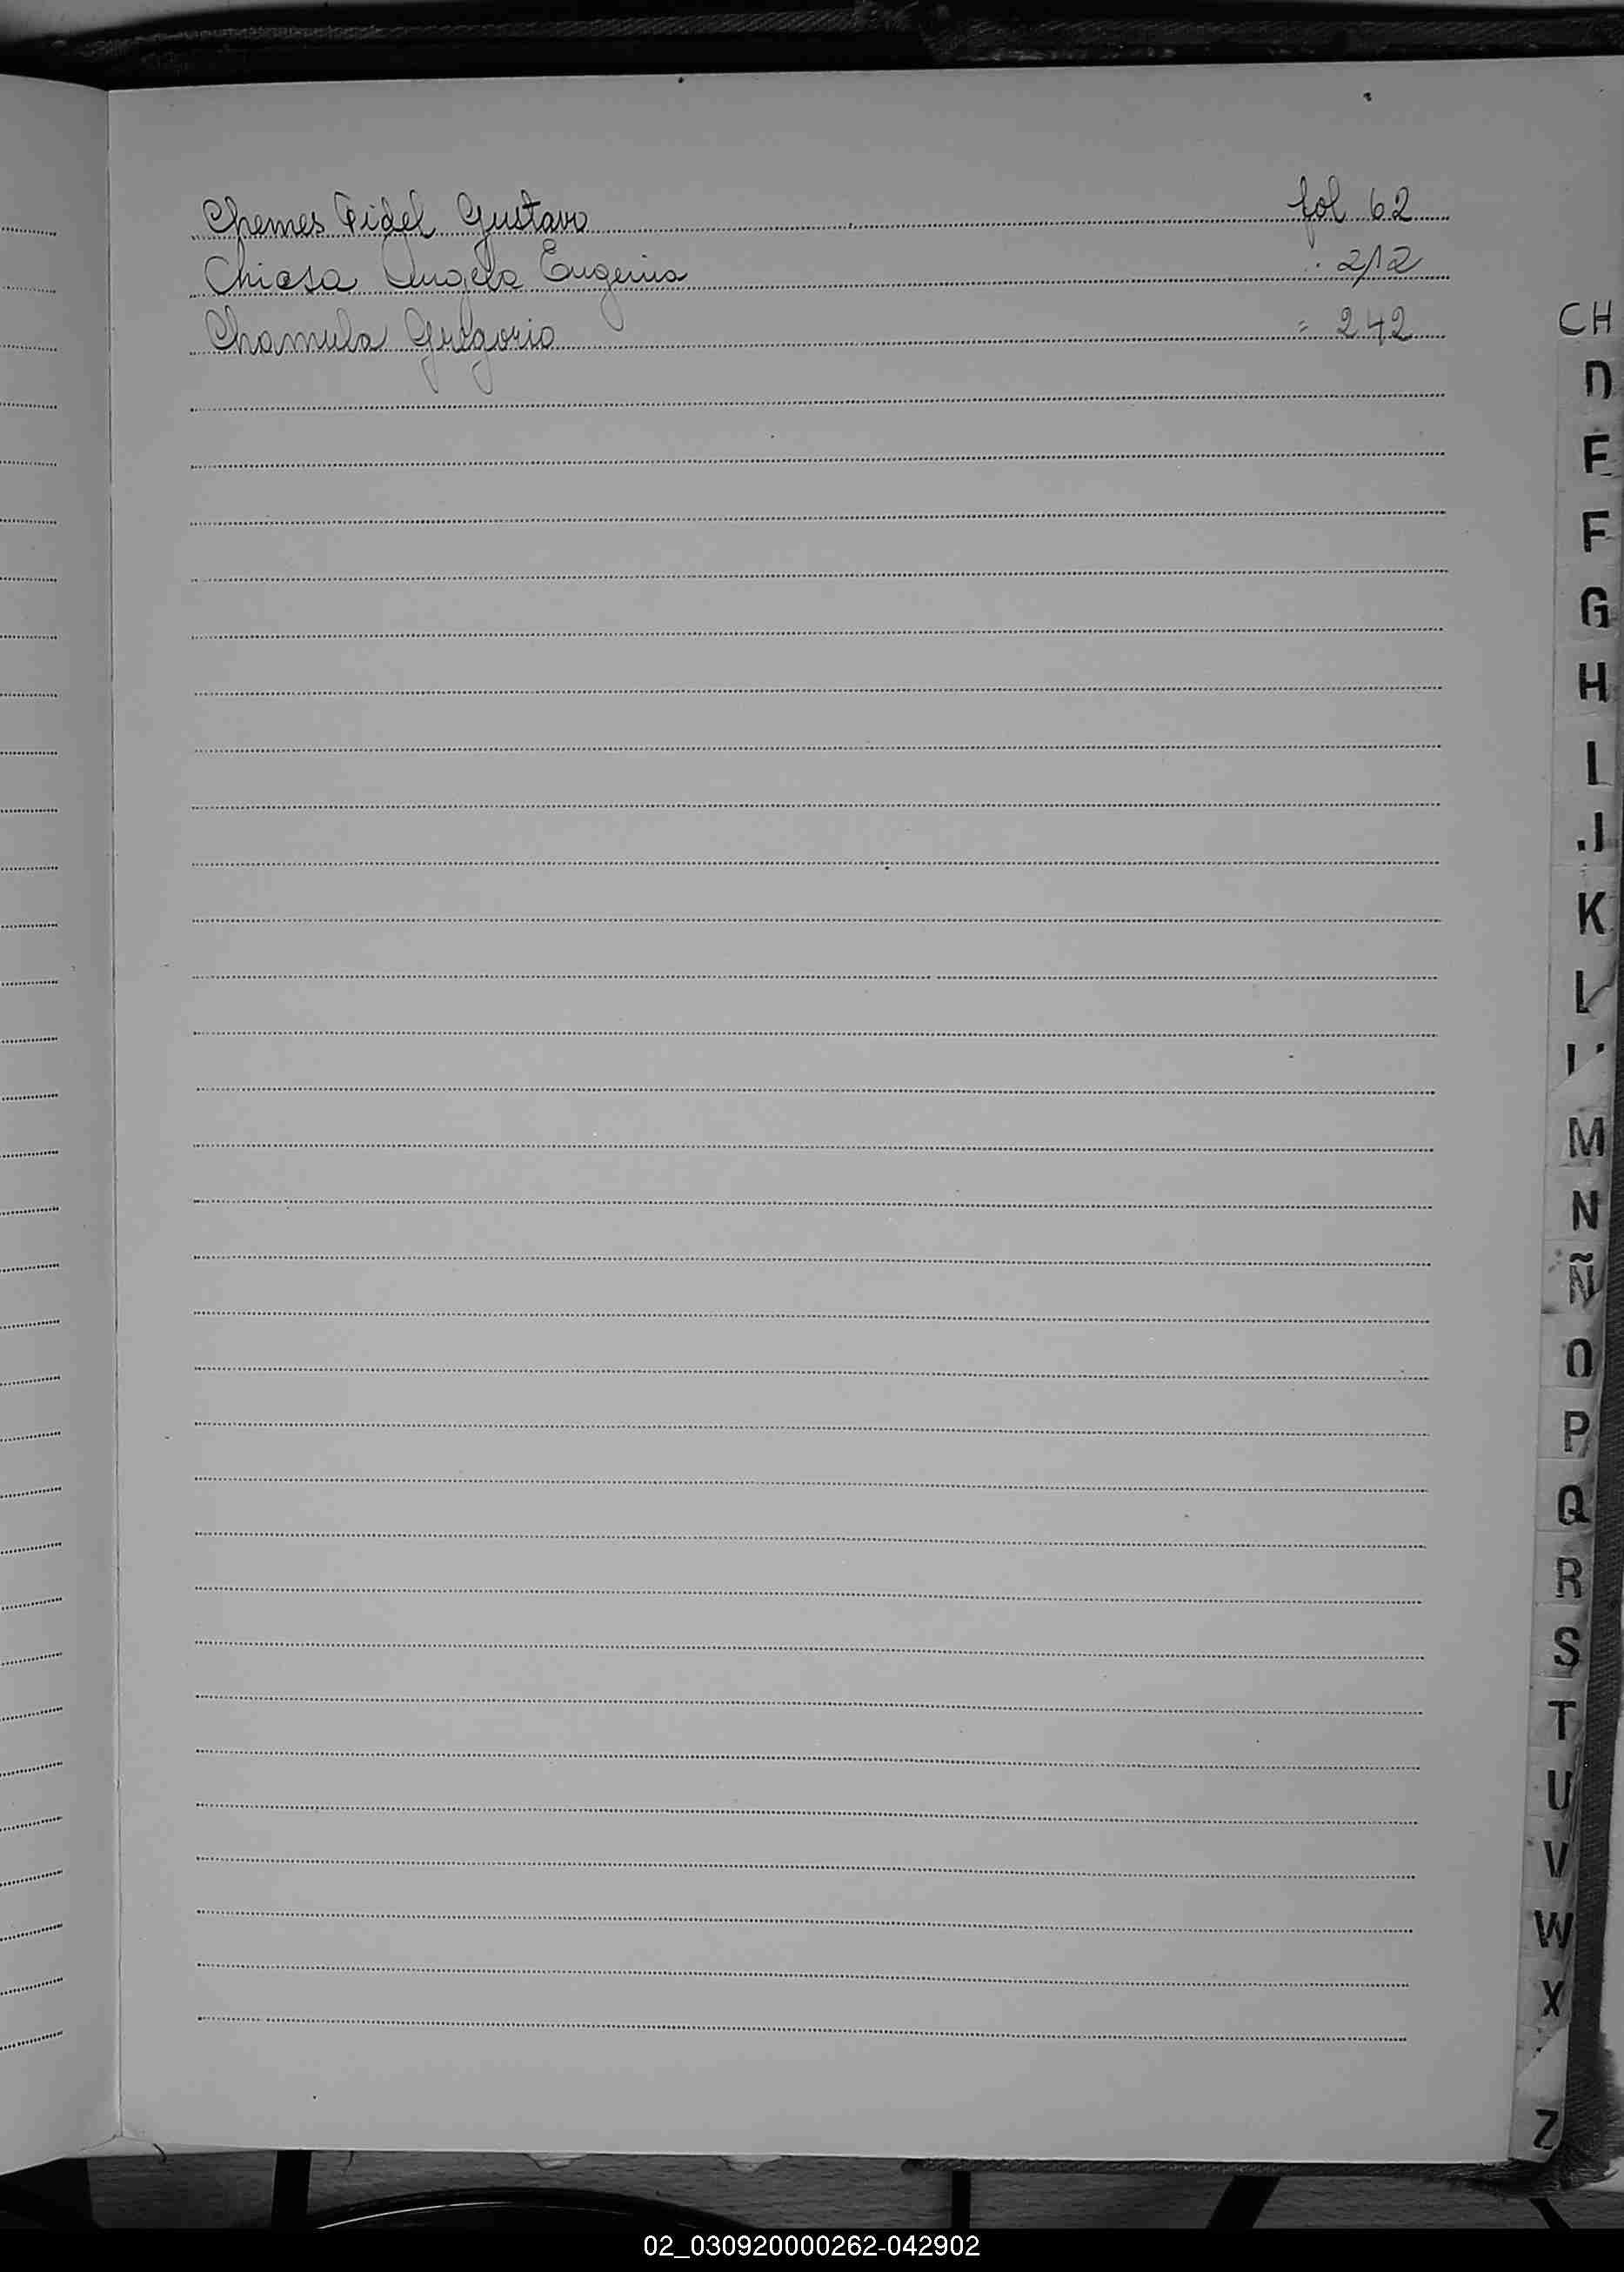 Chemes Fidel Gustavo fol 62
Chiesa Angela Eugenia " 212
Chamula Gregorio = 242
CH
D
E
F
G
H
I
J
K
L
M
N
Ñ
O
P
Q
R
S
T
U
V
W
X
Z
02_030920000262-042902